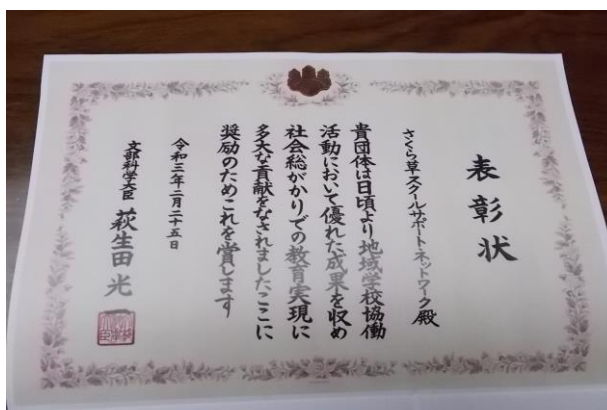 表彰状
さくら草スクールサポートネットワーク殿
貴団体は日頃より地域学校協働
活動において優れた成果を収め
社会総がかりでの教育実現に
多大な貢献をなされましたここに
奨励のためこれを賞します
令和三年二月二十五日
文部科学大臣 萩生田 光